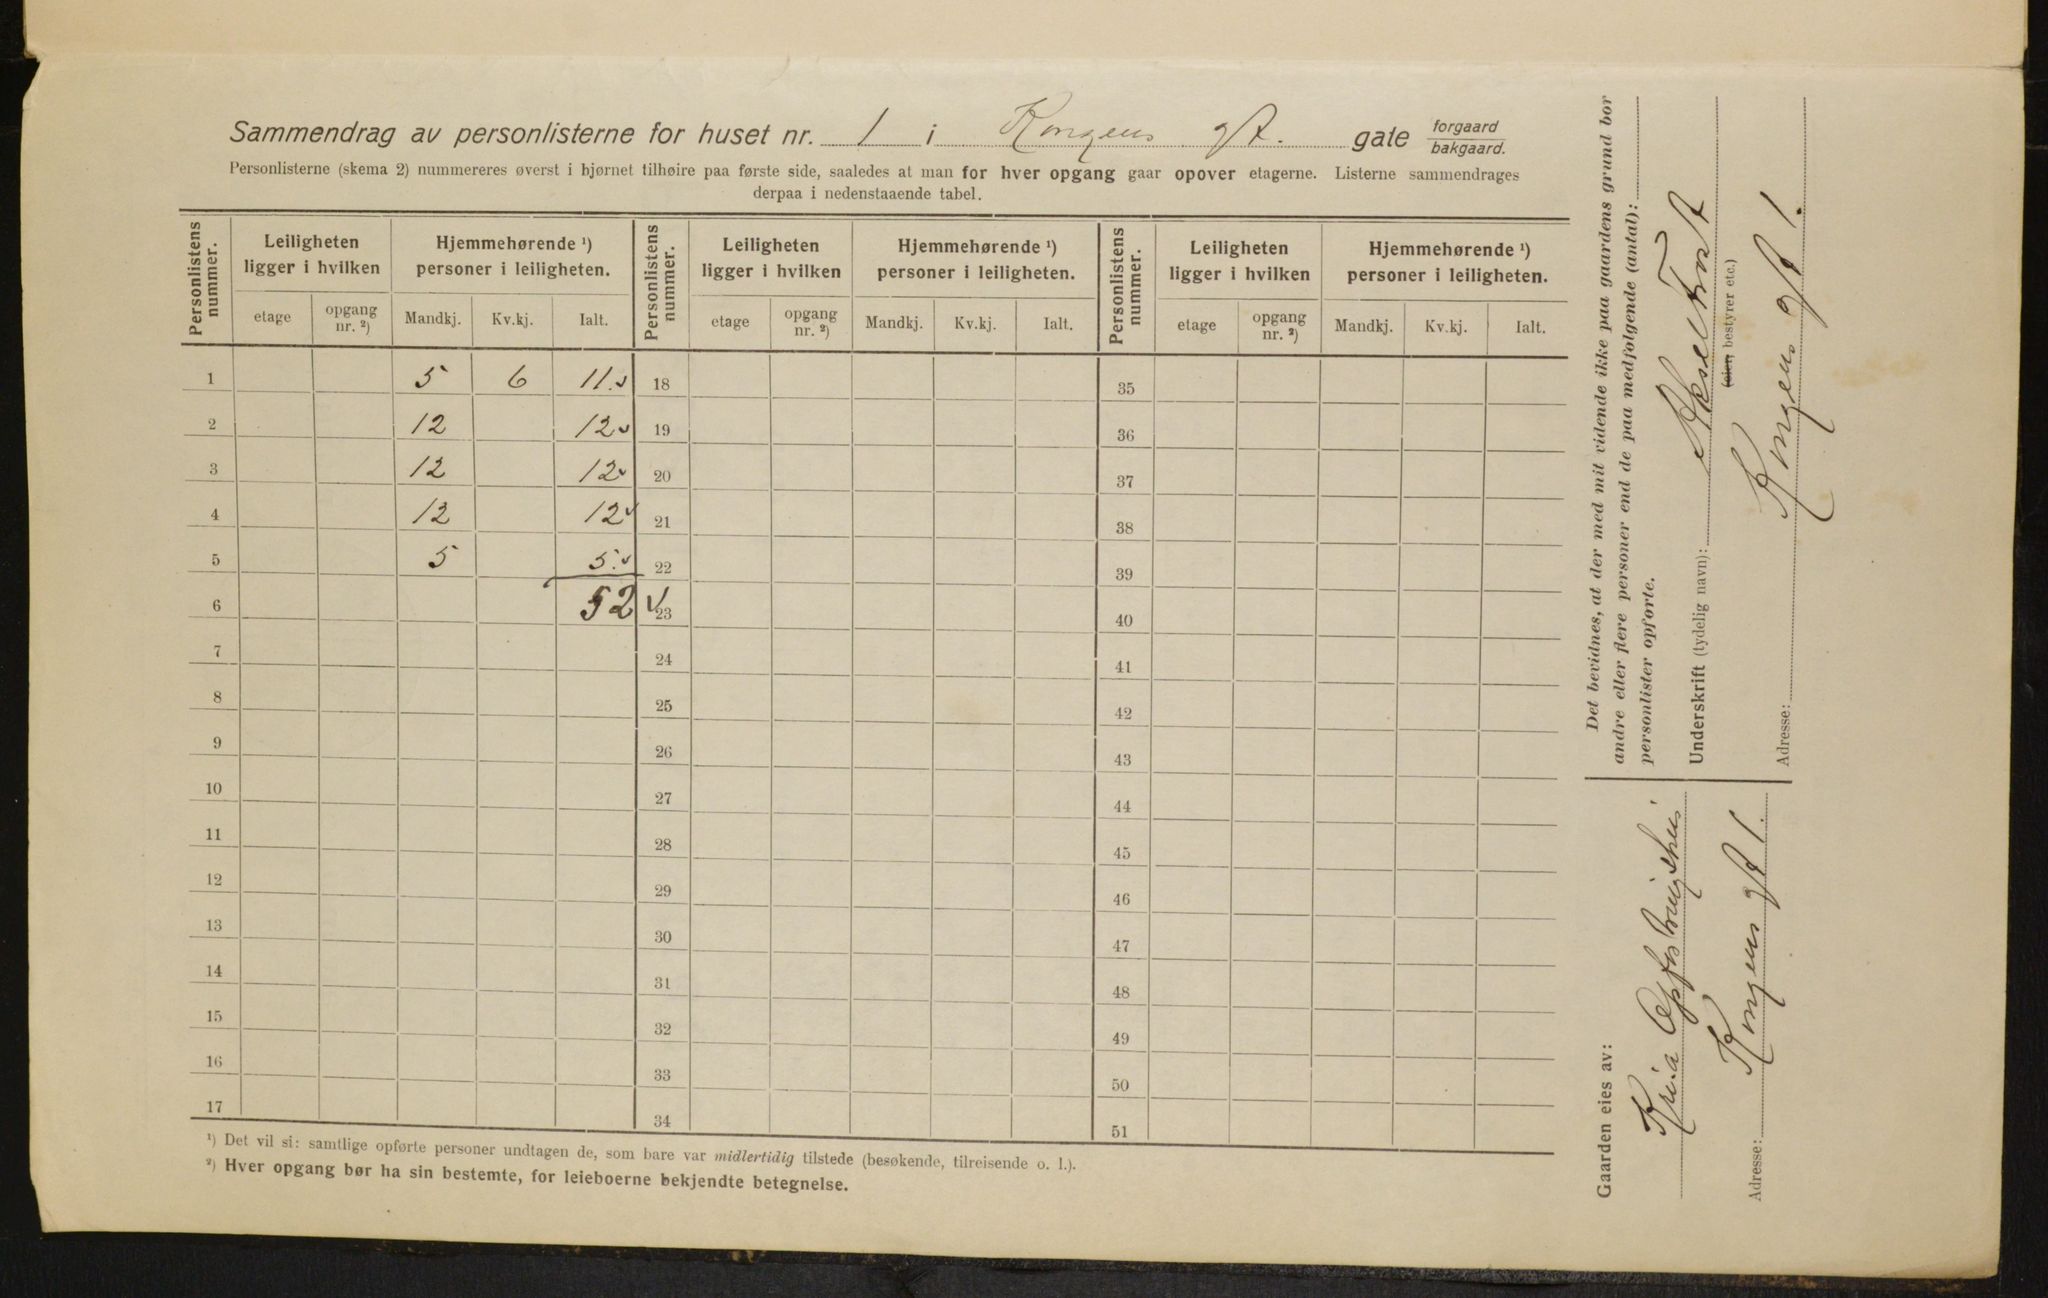 Sammendrag av personlisterne for huset nr. 1 i Kongens gt. gate forgaard bakgaard.
Personlisterne (skema 2) nummereres øverst i hjørnet tilhøire paa første side, saaledes at man for hver opgang gaar opover etagerne. Listerne sammendrages
derpaa i nedenstaaende tabel.
Personlistens nummer. Leiligheten ligger i hvilken Hjemmehørende ¹) personer i leiligheten. Personlistens nummer. Leiligheten ligger i hvilken Hjemmehørende ¹) personer i leiligheten. Personlistens nummer. Leiligheten ligger i hvilken Hjemmehørende ¹) personer i leiligheten.
etage opgang nr. ²) Mandkj. Kv.kj. Ialt. etage opgang nr. ²) Mandkj. Kv.kj. Ialt. etage opgang nr. ²) Mandkj. Kv.kj. Ialt.
1 5 6 11. 18 35
2 12 12 19 36
3 12 12 20 37
4 12 12 21 38
5 5 5. 22 39
6 52 23 40
7 24 41
8 25 42
9 26 43
10 27 44
11 28 45
12 29 46
13 30 47
14 31 48
15 32 49
16 33 50
17 34 51
¹) Det vil si: samtlige opførte personer undtagen de, som bare var midlertidig tilstede (besøkende, tilreisende o. l.).
²) Hver opgang bør ha sin bestemte, for leieboerne bekjendte betegnelse.
Det bevidnes, at der med mit vidende ikke paa gaardens grund bor
andre eller flere personer end de paa medfølgende (antal):
personlister opførte.
Underskrift (tydelig navn): Aksel Trost
(eier, bestyrer etc.)
Adresse: Kongens gt 1.
Gaarden eies av:
Kr.ia Opfostringshus
Adresse: Kongens gt 1.